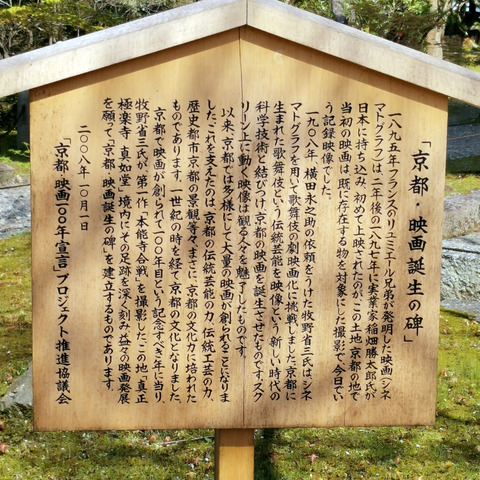 「京都・映画誕生の碑」
一八九五年フランスのリュミエール兄弟が発明した映画(シネ
マトグラフ)は、二年後の一八九七年に実業家稲畑勝太郎氏が
日本に持ち込み、初めて上映されたのがこの土地、京都の地で
当初の映画は、既に存在する物を対象にした撮影で、今日でい
う記録映像でした。
一九〇八年、横田永之助の依頼をうけた牧野省三氏は、シネ
マトグラフを用いて歌舞伎の劇映画化に挑戦しました。京都に
生まれた歌舞伎という伝統芸能を映像という新しい時代の
科学技術と結びつけ、京都の映画を誕生させたものです。スク
リーン上に動く映像は観る人々を魅了したものです。
以来、京都では多様にして大量の映画が創られることになりま
した。これを支えたのは、京都の伝統芸能の力、伝統工芸の力、
歴史都市京都の景観等々、まさに、京都の文化力に培われた
ものであります。一世紀の時を経て、京都の文化となりました。
京都で映画が創られて一〇〇年目という記念すべき年に当り、
牧野省三氏が第一作「本能寺合戦」を撮影したこの地、真正
極楽寺 真如堂の境内にその足跡を深く刻み、益々の映画発展
を願って、「京都・映画誕生の碑」を建立するものであります。
二〇〇八年 一〇月一日
「京都 映画一〇〇年宣言」プロジェクト推進協議会